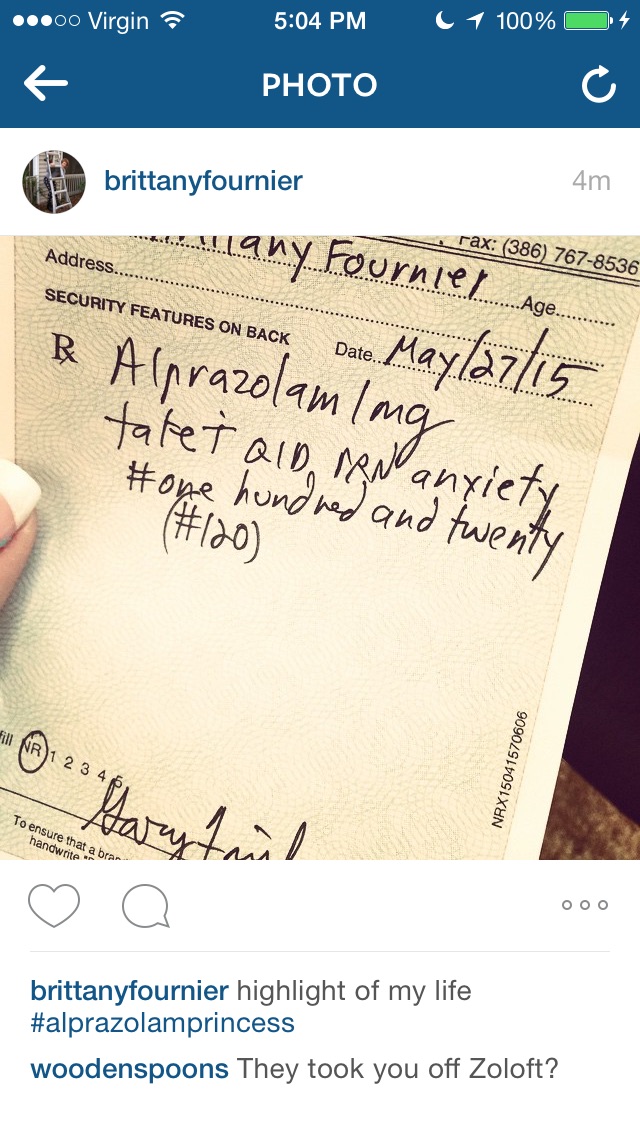 Virgin 5:04 PM 100%
PHOTO
brittanyfournier 4m
Fournier
Fax: (386) 767-8536
Address
Age
SECURITY FEATURES ON BACK
Date May/27/15
Rx Alprazolam 1mg
take T QID PRN anxiety
#one hundred and twenty
(#120)
NR 1 2 3 4 5
NRX15041570606
Gary
To ensure that a
handwrite
brittanyfournier highlight of my life
#alprazolamprincess
woodenspoons They took you off Zoloft?